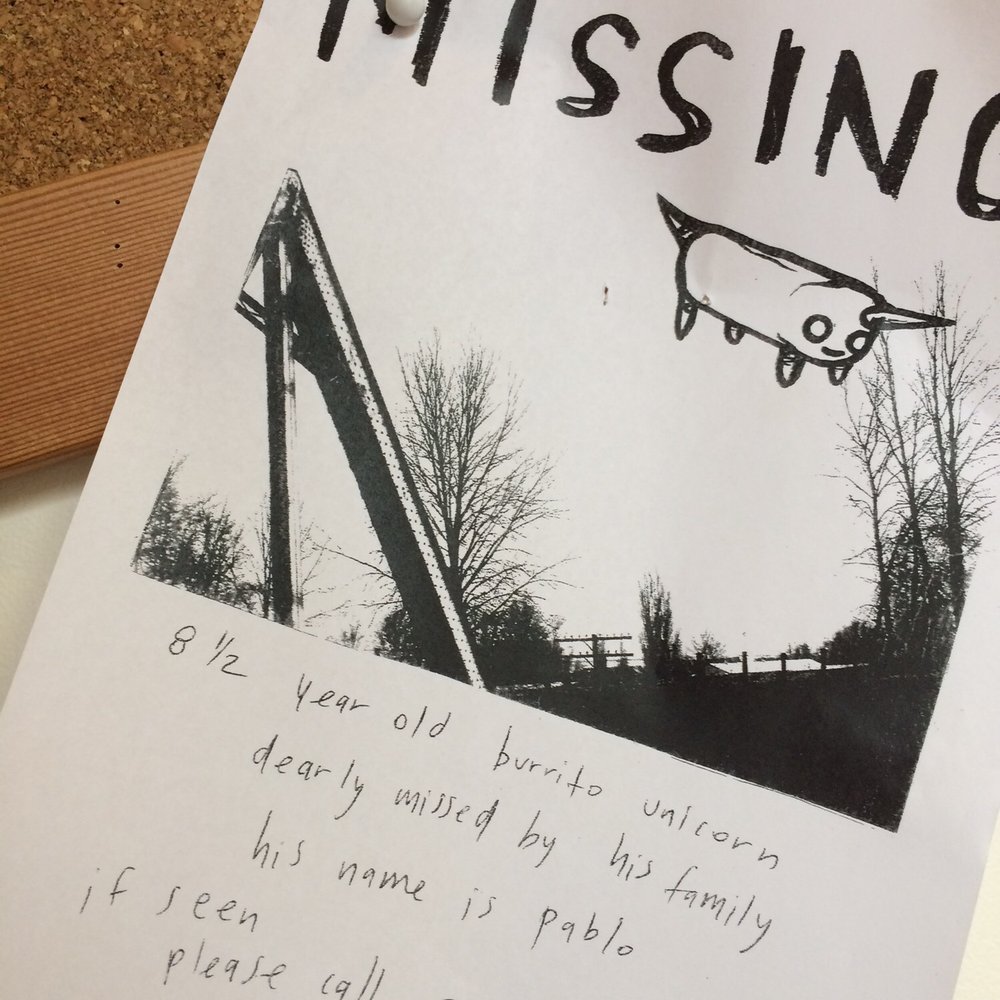 MISSING
8 1/2 year old burrito unicorn
dearly missed by his family
his name is pablo
if seen
please call